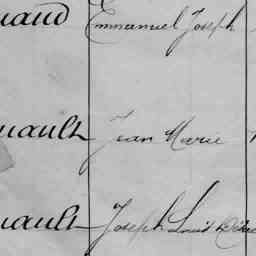 uaud Emmanuel Joseph
uault Jean Marie
uault Joseph Louis Désiré